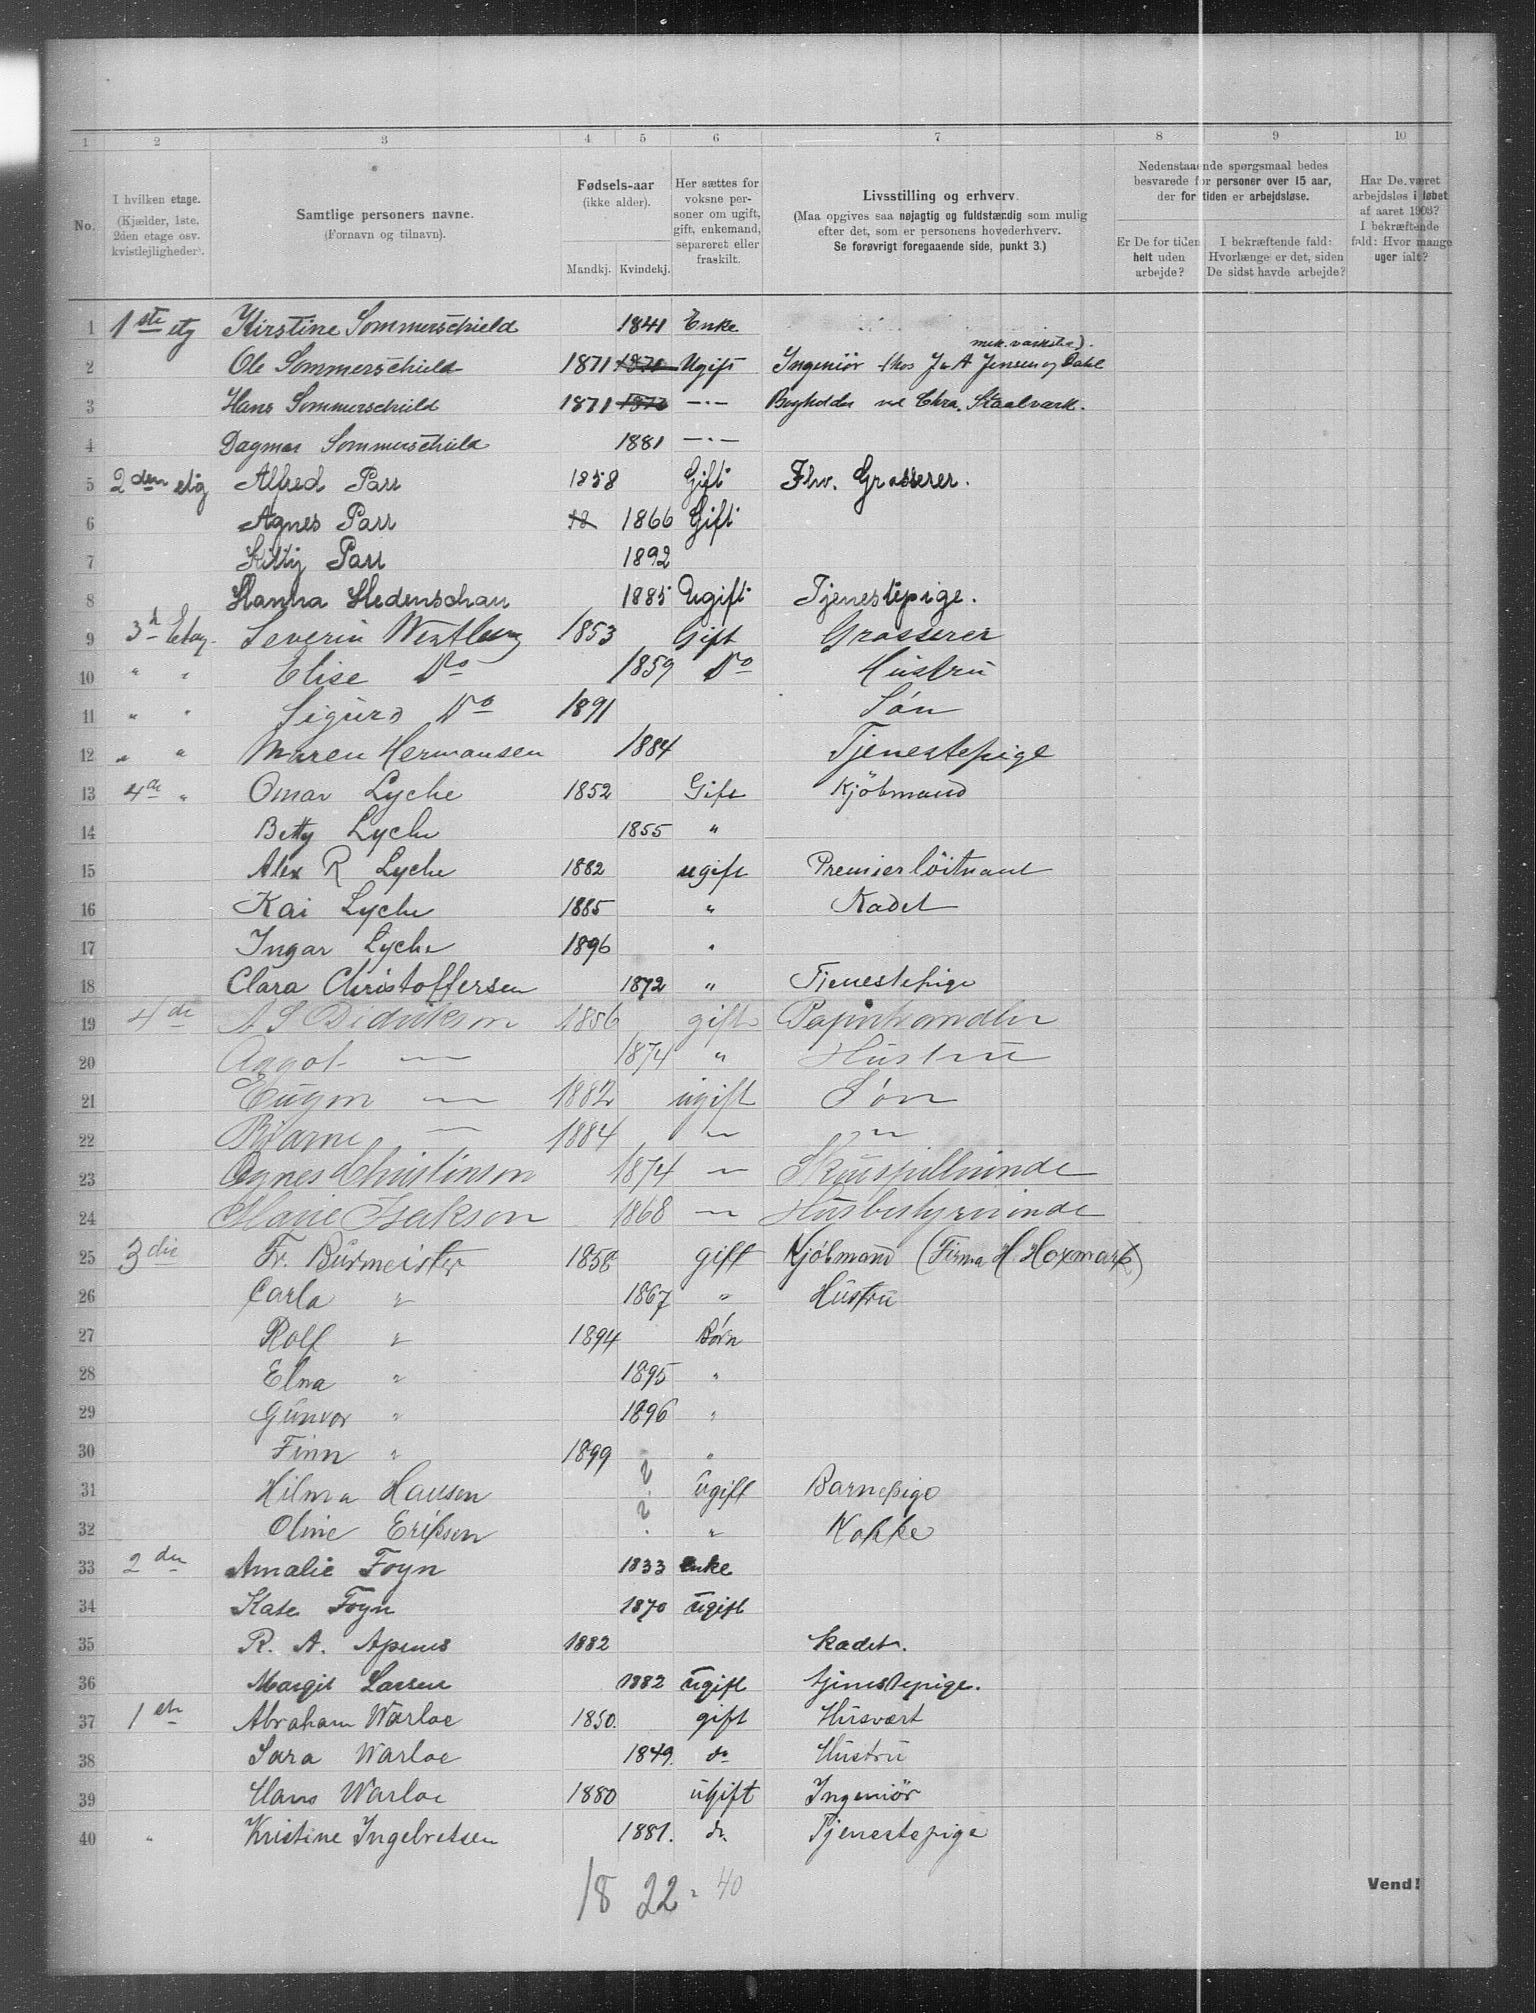 1 2 3 4 5 6 7 8 9 10
No.
I hvilken etage.
(Kjælder, 1ste, 2den etage osv. kvistlejligheder).
Samtlige personers navne.
(Fornavn og tilnavn).
Fødsels-aar
(ikke alder).
Mandkj. Kvindekj.
Her sættes for voksne personer om ugift, gift, enkemand, separeret eller fraskilt.
Livsstilling og erhverv.
(Maa opgives saa nøjagtig og fuldstændig som mulig efter det, som er personens hovederhverv.
Se forøvrigt foregaaende side, punkt 3.)
Nedenstaaende spørgsmaal bedes besvarede for personer over 15 aar, der for tiden er arbejdsløse.
Er De for tiden helt uden arbejde?
I bekræftende fald: Hvorlænge er det, siden De sidst havde arbejde?
Har De været arbejdsløs i løbet af aaret 1903? I bekræftende fald: Hvor mange uger ialt?
1 1ste etg Kirstine Sommerschield 1841 Enke
mek. værksted).
2 Ole Sommerschield 1871 Ugift Ingeniör (hos J & A Jensen og Dahl
3 Hans Sommerschield 1871 —·— Bogholder ved Chra. Staalværk.
4 Dagmar Sommerschield 1881 —·—
5 2den etg Alfred Parr 1858 Gift Fhv. Grosserer.
6 Agnes Parr 18 1866 Gift
7 Kitty Parr 1892
8 Hanna Hedenschau 1885 Ugift Tjenestepige.
9 3d Etag. Severin Westbug 1853 Gift Grosserer
10 " " Elise Do 1859 Do Hustru
11 " " Sigurd Do 1891 Søn
12 " " Maren Hermansen 1884 Tjenestepige
13 4de " Omar Lyche 1852 Gift Kjöbmand
14 Betty Lyche 1855 "
15 Alex R Lyche 1882 ugift Premierlöitnant
16 Kai Lyche 1885 " Kadet
17 Ingar Lyche 1896 "
18 Clara Christoffersen 1872 " Tjenestepige
19 4de A S Didrikson 1856 gift Papirhandler
20 Aagot — 1874 " Hustru
21 Eugen — 1882 ugift Søn
22 Bjarne — 1884 — "
23 Agnes Christinson 1874 — Skuespillerinde
24 Marie Isakson 1868 — Husbestyrerinde
25 3die Fr. Burmeister 1858 gift Kjöbmand (Firma H. Hoxmark)
26 Carla " 1867 " Hustru
27 Rolf " 1894 Børn
28 Elna " 1895 "
29 Gunvor " 1896 "
30 Finn " 1899 "
31 Hilma Hansen ? Ugift Barnepige
32 Oline Eriksen ? " Kokke
33 2den Amalie Foyn 1833 enke
34 Kate Foyn 1870 ugift
35 R. A. Apenes 1882 kadet.
36 Margit Larsen 1882 ugift tjenestepige.
37 1ste Abraham Warloe 1850. gift Husvært
38 Sara Warloe 1849. do Hustru
39 Hans Warloe 1880 ugift Ingeniör
40 " Kristine Ingebretsen 1881. do. Tjenestepige
18 22 = 40
Vend!